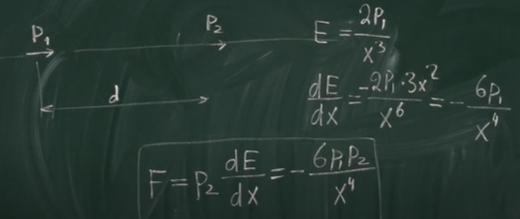 P₁
P₂
d
E = 2P₁/x³
dE/dx = -2P₁·3x²/x⁶ = -6P₁/x⁴
F = P₂ dE/dx = -6P₁P₂/x⁴